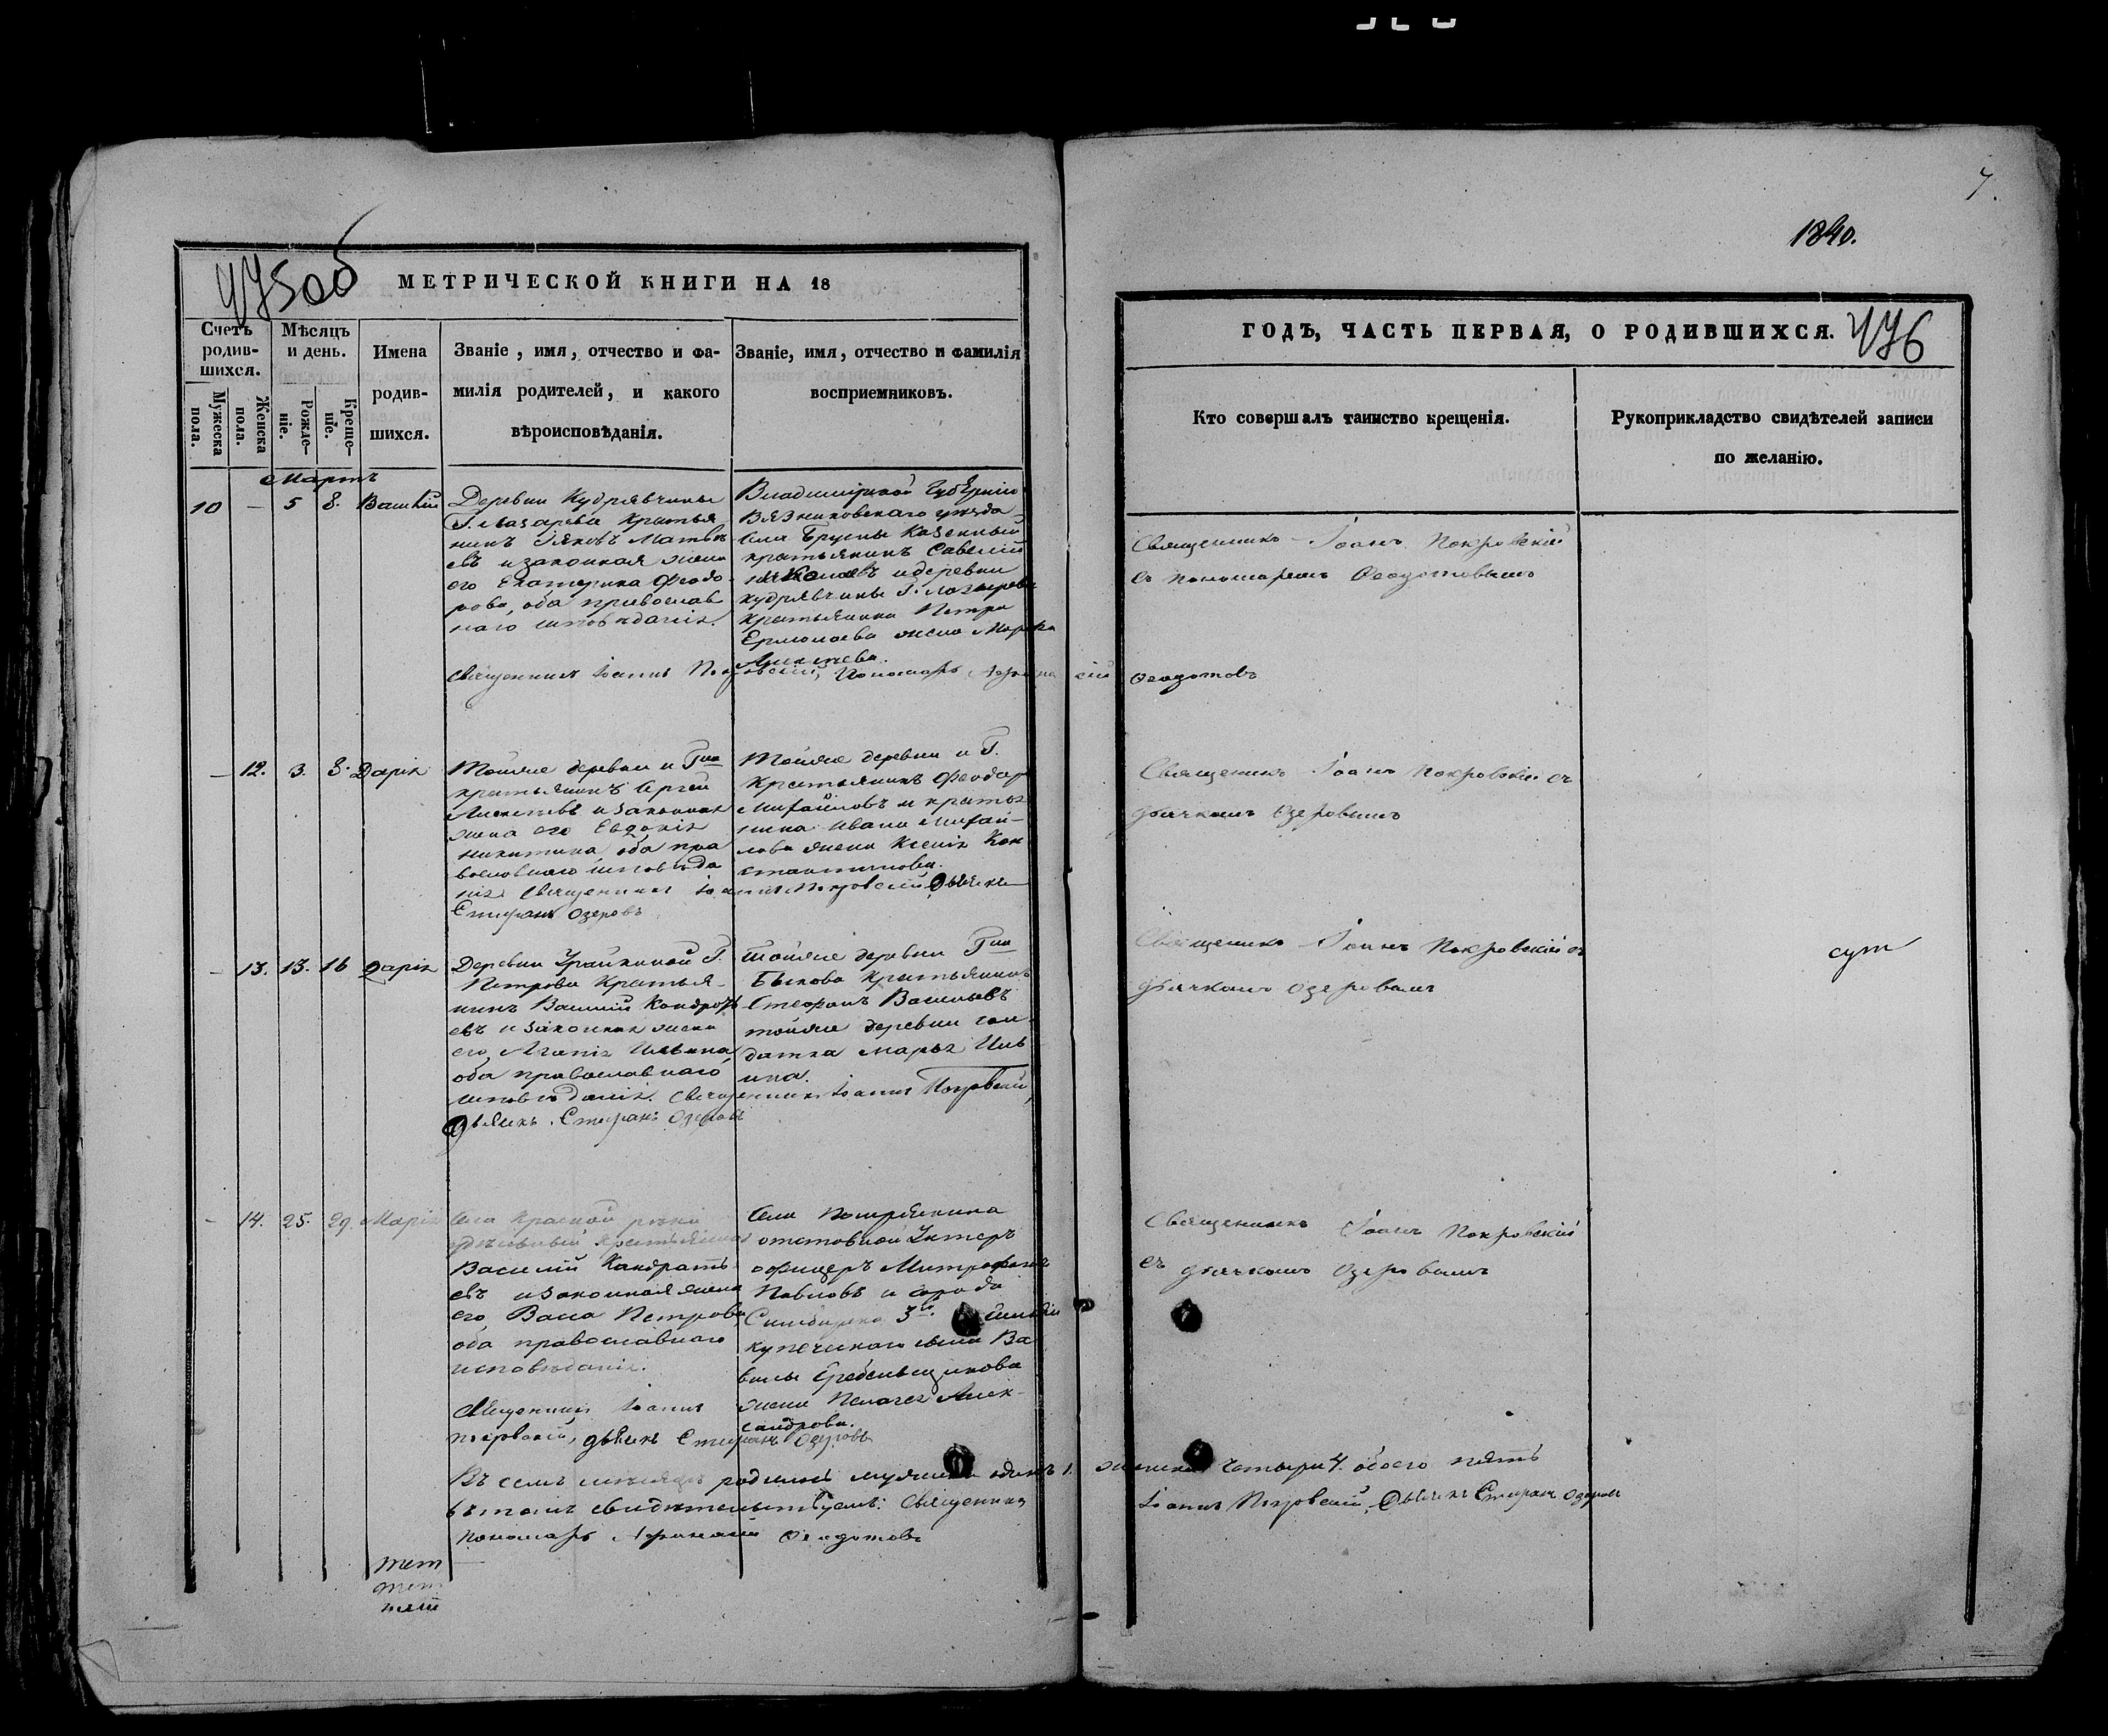 7.
1840.
475об
МЕТРИЧЕСКОЙ КНИГИ НА 18
Счетъ родив-шихся.
Мужеска пола.
Женска пола.
Мѣсяцъ и день.
Рожде-ніе.
Креще-ніе.
Имена родив-шихся.
Званіе, имя, отчество и фа-
милія родителей, и какого
вѣроисповѣданія.
Званіе, имя, отчество и фамилія
воспріемниковъ.
Мартъ
10 — 5 8. Василій
Деревни Кудрявчины
Г. Лазарева Крестья
нинъ Яковъ Матвѣ
евъ и законная жена
его Екатерина Феодо
рова, оба православ
наго исповѣданія.
Владимірской Губерніи
Вязниковскаго уѣзда
села Казенный
крестьянинъ Савелій
и деревни
кудрявчины Г. Лазарева
Крестьянина Петра
Ермолаева жена
Алексѣева.
Священникъ Іоаннъ Покровскій, Пономарь Афанасій Феодотовъ
— 12. 3. 8. Дарія
Тойже деревни и Гна
крестьянинъ Сергей
Алексѣевъ и законная
жена его Евдокія
Никитина оба пра
вославнаго исповѣда
нія
Тойже деревни и Г.
Крестьянинъ Феодоръ
Михайловъ и крестья
нина Ивана Михай-
лова жена Ксенія Кон
стантинова.
Священникъ Іоаннъ Покровскій, Дьячекъ
Стефанъ Озеровъ
— 13. 13. 16 Дарія
Деревни Г.
Петрова Крестья-
нинъ Василій Кондрать
евъ и законная жена
его Агапія Ильина
оба православнаго
исповѣданія.
тойже деревни Гна
Быкова Крестьянинъ
Стефанъ Васильевъ
тойже деревни сол
датка Марья Иль
ина.
Священникъ Іоаннъ Покровскій,
Дьячекъ Стефанъ Озеровъ
- 14. 25. 29. Марія
Села Красной рѣки
удѣльный крестьянинъ
Василій Кандрать
евъ и законная жена
его Васса Петрова
оба православнаго
исповѣданія.
Села
отставной Унтеръ
офицеръ Митрофанъ
Павловъ и города
Симбирска 3й гильдіи
купеческаго сына Ва
силья Гребеньщикова
жена Пелагея Алек-
сандрова.
Священникъ Іоаннъ
Покровскій, дьячекъ Стефанъ Озеровъ
Въ семъ мѣсяцѣ родилось мужеска одинъ 1. женска четыре 4. обоего пять
въ томъ свидѣтельствуемъ: Священникъ Іоаннъ Покровскій, Дьячекъ Стефанъ Озеровъ
Пономарь Афанасій Феодотовъ
ГОДЪ, ЧАСТЬ ПЕРВАЯ, О РОДИВШИХСЯ.
476
Кто совершалъ таинство крещенія.
Рукоприкладство свидѣтелей записи
по желанію.
Священникъ Іоаннъ Покровскій
съ пономаремъ Феодотовымъ
Священникъ Іоаннъ Покровскій съ
дьячкомъ Озеровымъ
Священникъ Іоаннъ Покровскій съ
дьячкомъ Озеровымъ
Священникъ Іоаннъ Покровскій
съ дьячкомъ Озеровымъ